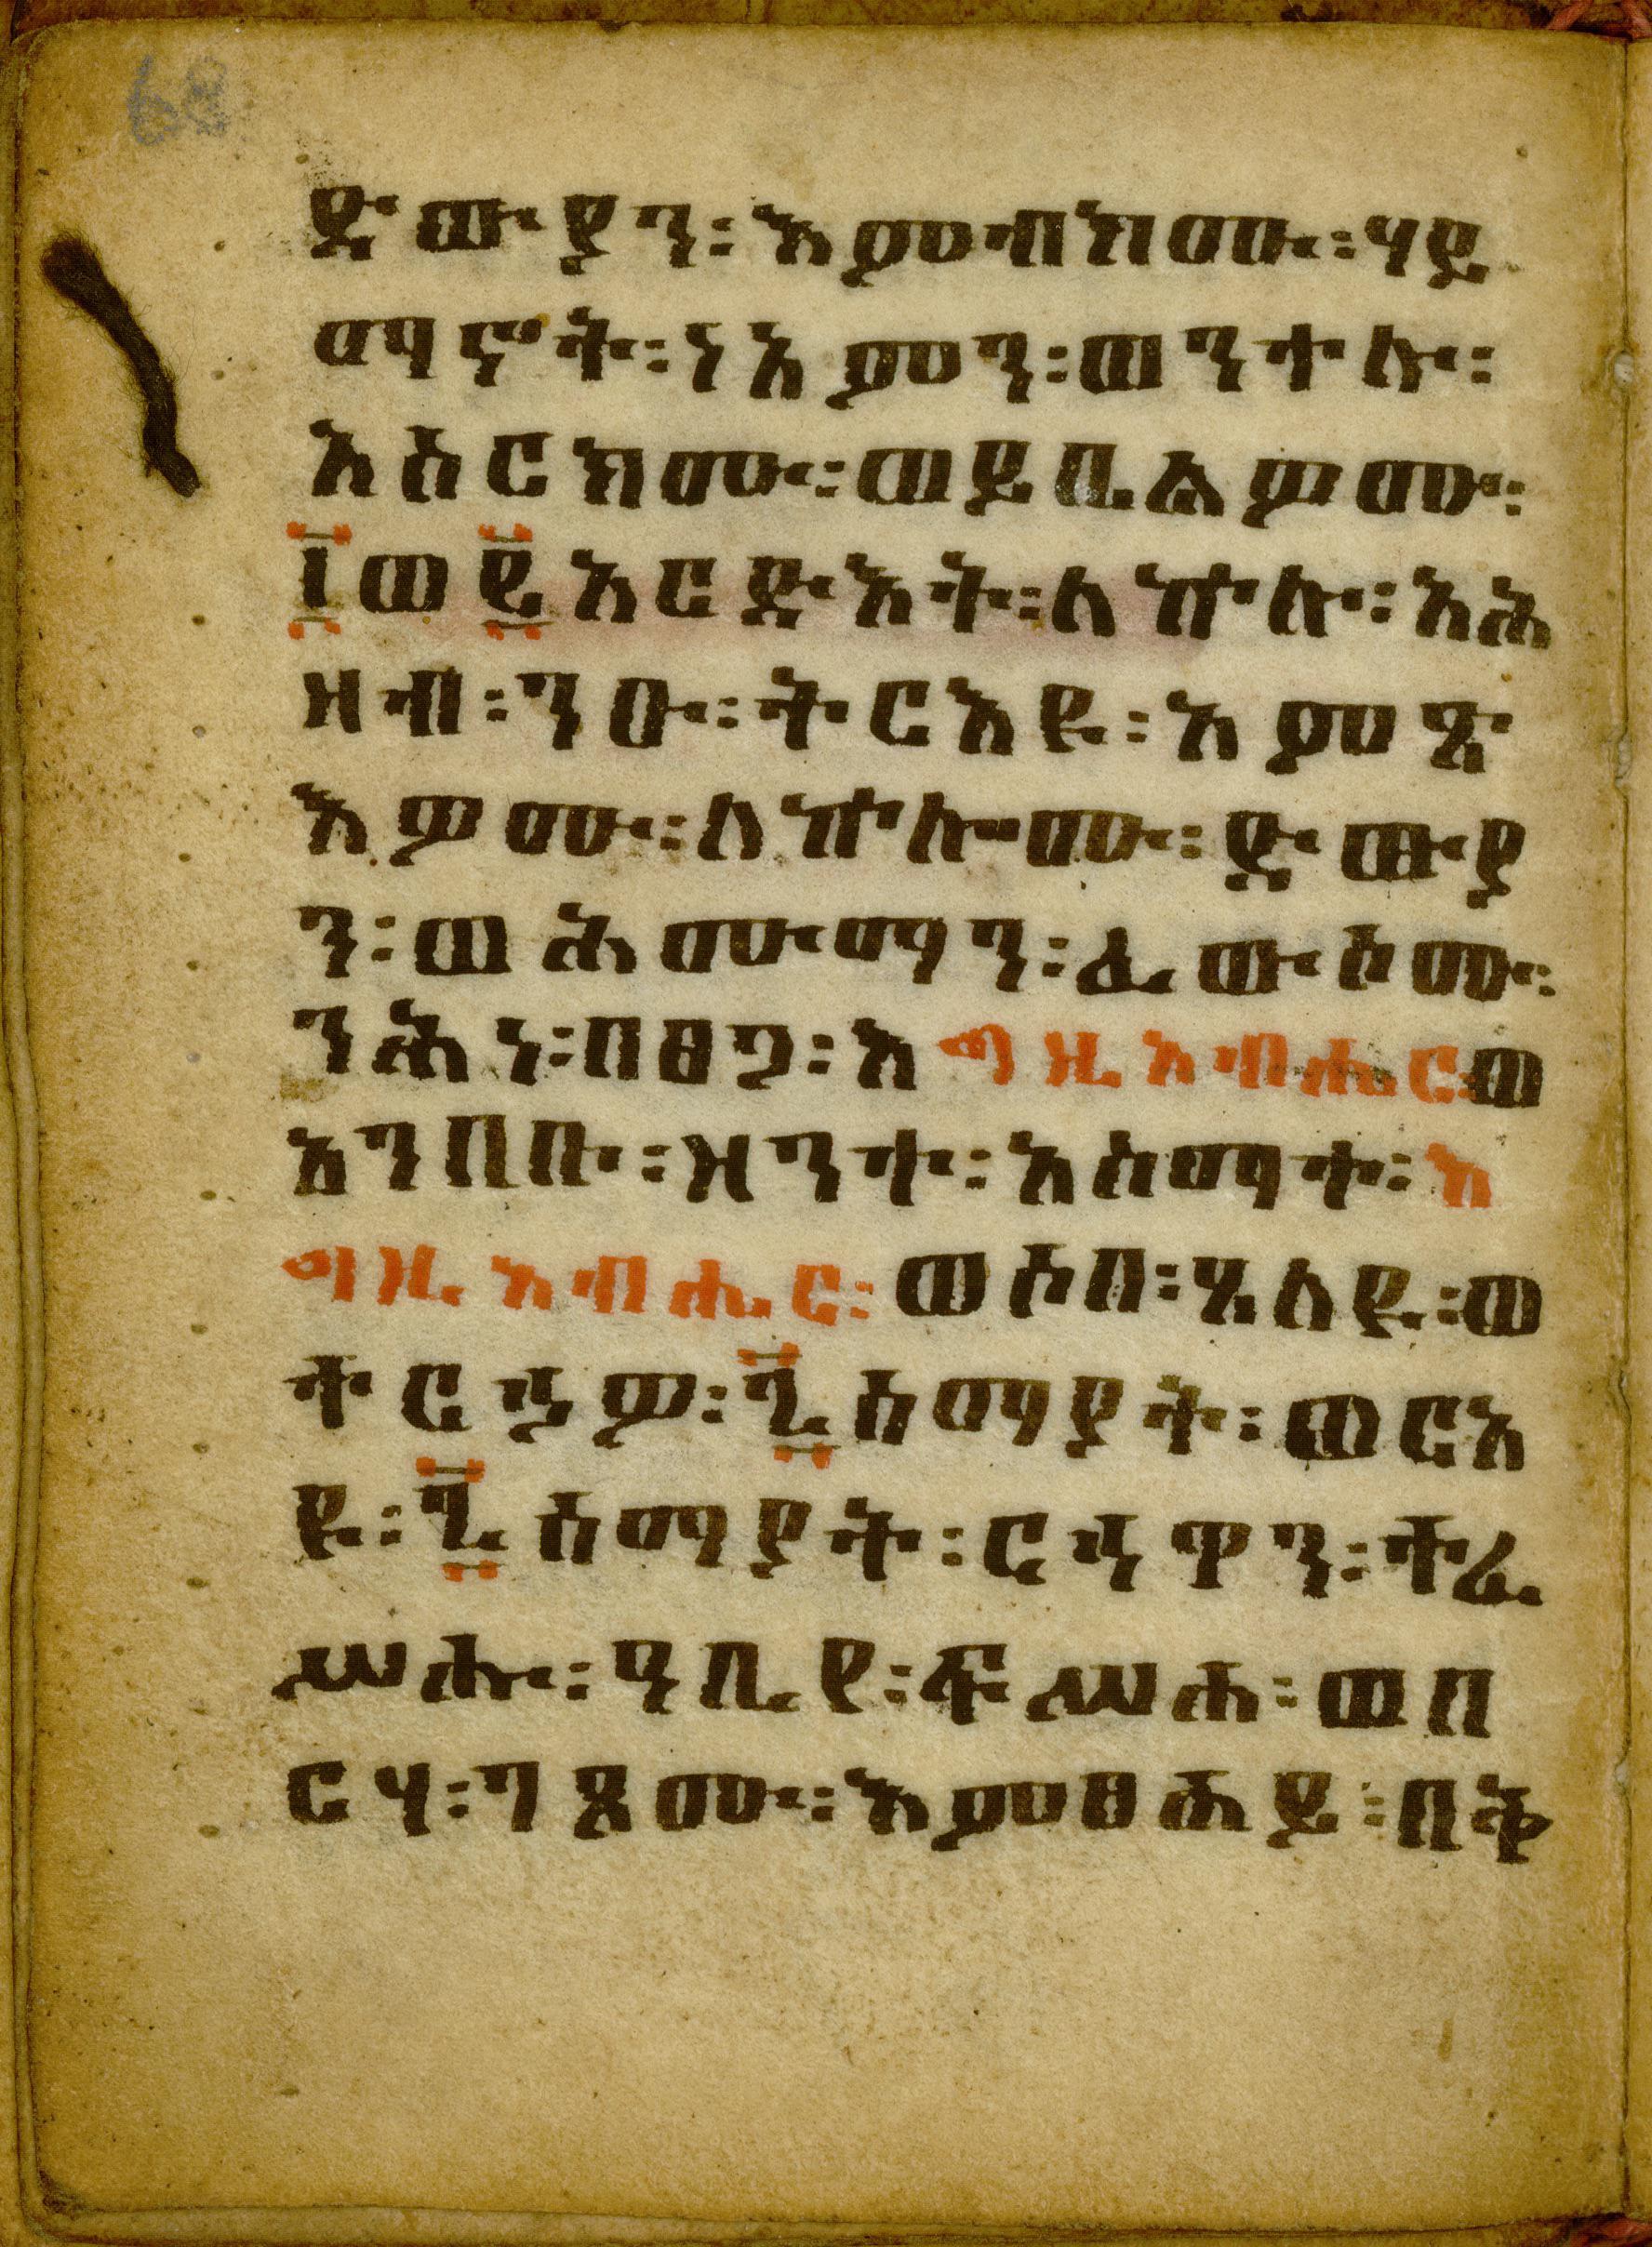 68
ድውያን፡ እምብክሙ፡ ሃይ
ማኖት፡ ነአምን፡ ወንተሉ፡
እስርክሙ፡ ወይቤልዎሙ፡
፲ወ፪አርድእት፡ ለኵሉ፡ አሕ
ዛብ፡ ንዑ፡ ትርአዩ፡ አምጽ
እዎሙ፡ ለኵሎሙ፡ ድውያ
ን፡ ወሕሙማን፡ ፈውሶሙ፡
ንሕነ፡ በፀጋ፡ እግዚአብሔር፡ወ
አንበቡ፡ ዘንተ፡ አስማተ፡ እ
ግዚአብሔር፡ ወሶበ፡ ጸለዩ፡ ወ
ተርኅወ፡ ፯ሰማያት፡ ወርእ
ዩ፡ ፯ሰማያት፡ ርኅዋን፡ ተፈ
ሥሑ፡ ዓቢየ፡ ፍሥሐ፡ ወበ
ርሃ፡ ገጾሙ፡ እምፀሐይ፡ በቅ